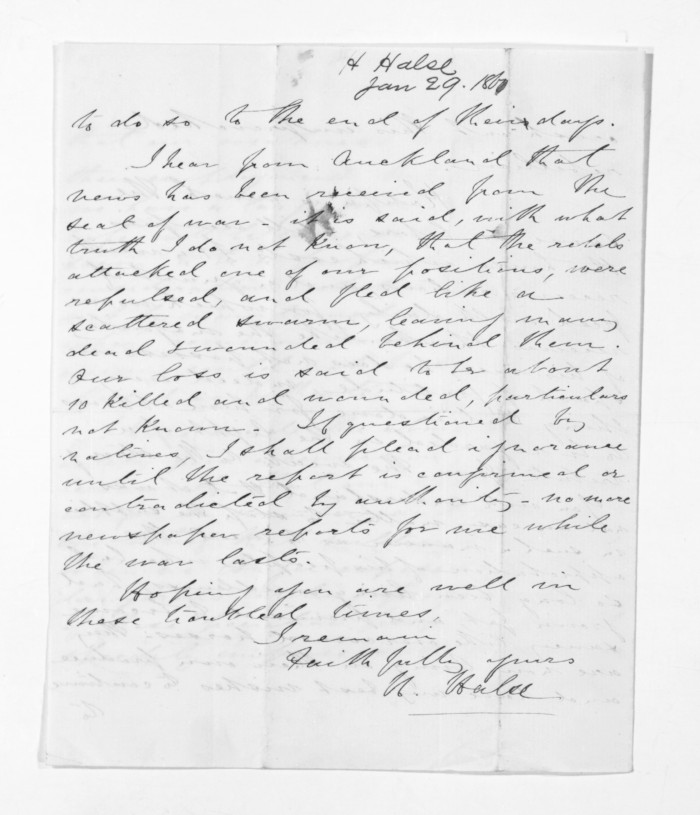 H Halse
Jan 29. 1861
to do so to the end of their days.
I hear from Auckland that
news has been received from the
seat of war - it is said, with what
truth I do not know, that the rebels
attacked one of our positions, were
repulsed, and fled like a
scattered swarm, leaving many
dead & wounded behind them.
Our loss is said to be about
10 killed and wounded, particulars
not known. If questioned by
natives, I shall plead ignorance
until the report is confirmed or
contradicted by authority - no more
newspaper reports for me while
the war lasts.
Hoping you are well in
these troubled times,
I remain
Faithfully yours
H. Halse